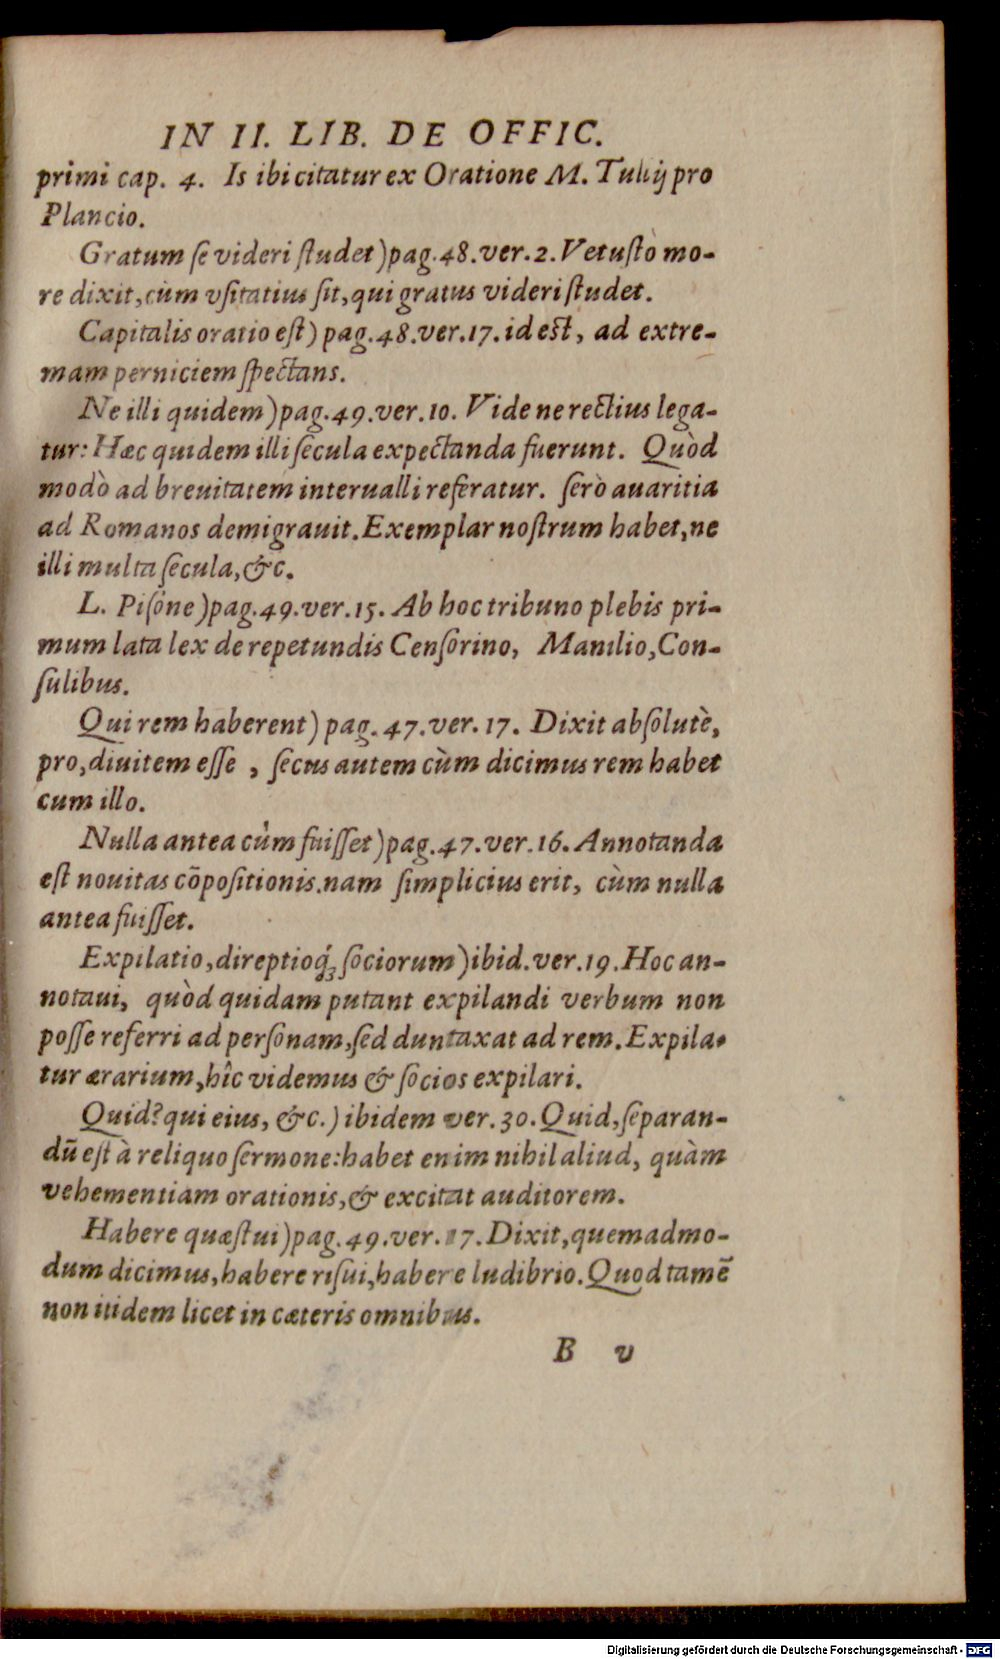 IN II. LIB. DE OFFIC.
primi cap. 4. Is ibi citatur ex Oratione M. Tullij pro
Plancio.
Gratum se videri studet) pag. 48. ver. 2. Vetusto mo-
re dixit, cùm vsitatius sit, qui gratus videri studet.
Capitalis oratio est) pag. 48. ver. 17. id est, ad extre-
mam perniciem spectans.
Ne illi quidem) pag. 49. ver. 10. Vide ne rectius lega-
tur: Hæc quidem illi secula expectanda fuerunt. Quòd
modò ad breuitatem interualli referatur. serò auaritia
ad Romanos demigrauit. Exemplar nostrum habet, ne
illi multa secula, &c.
L. Pisóne) pag. 49. ver. 15. Ab hoc tribuno plebis pri-
mum lata lex de repetundis Censorino, Manilio, Con-
sulibus.
Qui rem haberent) pag. 47. ver. 17. Dixit absolutè,
pro, diuitem esse , secus autem cùm dicimus rem habet
cum illo.
Nulla antea cùm fuisset) pag. 47. ver. 16. Annotanda
est nouitas cõpositionis. nam simplicius erit, cùm nulla
antea fuisset.
Expilatio, direptioq́; sociorum) ibid. ver. 19. Hoc an-
notaui, quòd quidam putant expilandi verbum non
posse referri ad personam, sed duntaxat ad rem. Expila-
tur ærarium, hîc videmus & socios expilari.
Quid? qui eius, &c.) ibidem ver. 30. Quid, separan-
dũ est à reliquo sermone: habet enim nihil aliud, quàm
vehementiam orationis, & excitat auditorem.
Habere quæstui) pag. 49. ver. 17. Dixit, quemadmo-
dum dicimus, habere risui, habere ludibrio. Quod tamẽ
non itidem licet in cæteris omnibus.
B v
Digitalisierung gefördert durch die Deutsche Forschungsgemeinschaft - DFG